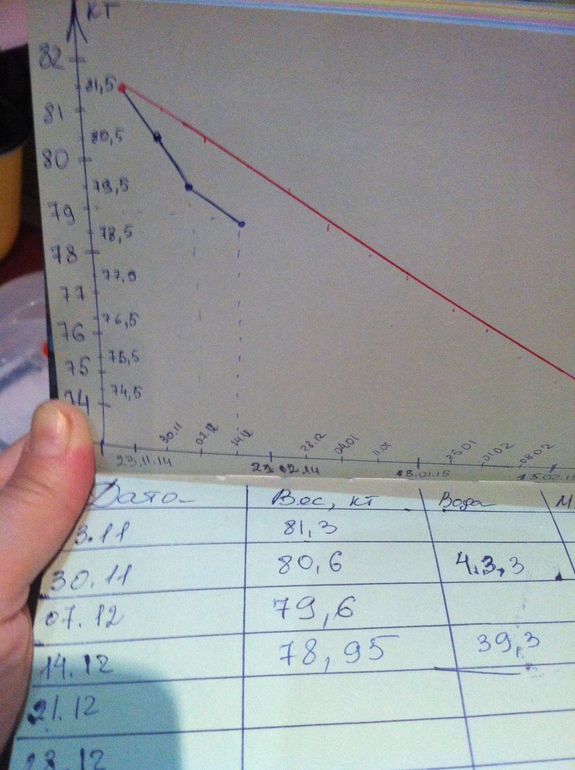 кг
82
81,5
81
80,5
80
79,5
79
78,5
78
77,5
77
76,5
76
75,5
75
74,5
74
23.11.14 30.11 07.12 14.12 21.12.14 28.12 04.01 11.01 18.01.15 25.01 01.02 08.02 15.02.15
Дата Вес, кг Вода М
3.11 81,3
30.11 80,6 43,3
07.12 79,6
14.12 78,95 39,3
21.12
28.12